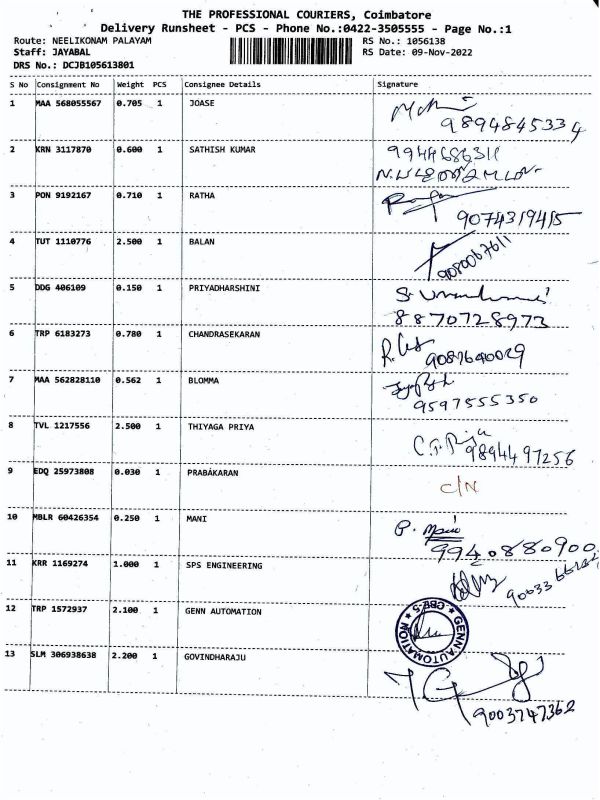 THE PROFESSIONAL COURIERS, Coimbatore
Delivery Runsheet - PCS - Phone No.:0422-3505555 - Page No.:1
Route: NEELIKONAM PALAYAM RS No.: 1056138
Staff: JAYABAL RS Date: 09-Nov-2022
DRS No.: DCJB105613801
S No Consignment No Weight PCS Consignee Details Signature
1 MAA 568055567 0.705 1 JOASE
9894845334
2 KRN 3117870 0.600 1 SATHISH KUMAR 9944686311
3 PON 9192167 0.710 1 RATHA
9074319415
4 TUT 1110776 2.500 1 BALAN
9080067611
5 DDG 406109 0.150 1 PRIYADHARSHINI
8870728973
6 TRP 6183273 0.780 1 CHANDRASEKARAN
7 MAA 562828110 0.562 1 BLOMMA
9597555350
8 TVL 1217556 2.500 1 THIYAGA PRIYA
9894497256
9 EDQ 25973808 0.030 1 PRABAKARAN C/N
10 MBLR 60426354 0.250 1 MANI P. Mani
9940880900
11 KRR 1169274 1.000 1 SPS ENGINEERING
12 TRP 1572937 2.100 1 GENN AUTOMATION GENN AUTOMATION CBE-5
13 SLM 306938638 2.200 1 GOVINDHARAJU
9003747362